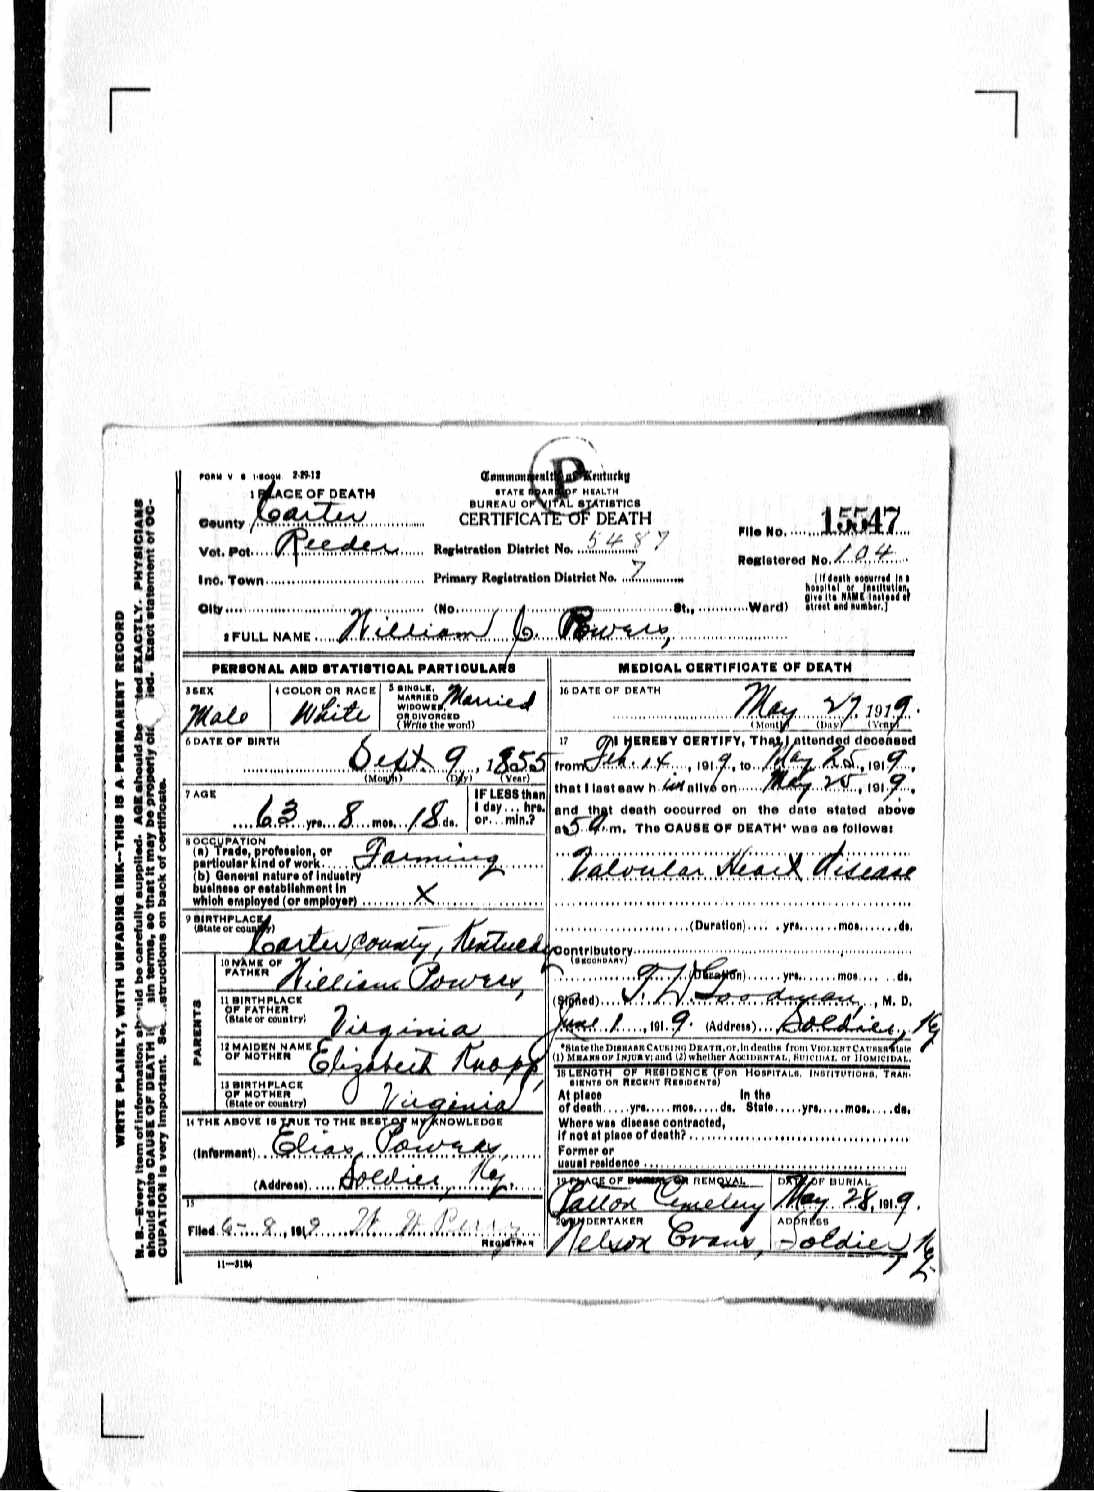 FORM V S 1-500M 2-29-12
Commonwealth of Kentucky
P
STATE BOARD OF HEALTH
BUREAU OF VITAL STATISTICS
CERTIFICATE OF DEATH
1 PLACE OF DEATH
County Carter
Vot. Pct. Reeder
Registration District No. 5487
File No. 15547
Registered No. 104
Inc. Town
Primary Registration District No. 7
[If death occurred in a hospital or institution, give its NAME instead of street and number.]
City (No. St., Ward)
2 FULL NAME William C. Powers,
PERSONAL AND STATISTICAL PARTICULARS
3 SEX
Male
4 COLOR OR RACE
White
5 SINGLE, MARRIED WIDOWED, OR DIVORCED (Write the word)
Married
6 DATE OF BIRTH
Sept. 9, 1855
(Month) (Day) (Year)
7 AGE
63 yrs. 8 mos. 18 ds.
IF LESS than 1 day ... hrs. or ... min.?
8 OCCUPATION
(a) Trade, profession, or
particular kind of work Farming
(b) General nature of industry
business or establishment in
which employed (or employer) X
9 BIRTHPLACE
(State or county)
Carter County, Kentucky
PARENTS
10 NAME OF FATHER
William Powers,
11 BIRTHPLACE OF FATHER (State or country)
Virginia
12 MAIDEN NAME OF MOTHER
Elizabeth Knapp,
13 BIRTHPLACE OF MOTHER (State or country)
Virginia
14 THE ABOVE IS TRUE TO THE BEST OF MY KNOWLEDGE
(Informant) Elias Powers,
(Address) Soldier, Ky.
15
Filed 6-8, 1919 W W Perry
REGISTRAR
11—3184
MEDICAL CERTIFICATE OF DEATH
16 DATE OF DEATH
May 27, 1919.
(Month) (Day) (Year)
17 I HEREBY CERTIFY, That I attended deceased
from Feb. 14, 1919, to May 25, 1919,
that I last saw h im alive on May 25, 1919,
and that death occurred on the date stated above
at 5 a. m. The CAUSE OF DEATH* was as follows:
Valvular Heart Disease
(Duration) yrs. mos. ds.
Contributory
(SECONDARY)
(Duration) yrs. mos. ds.
(Signed) T. W. Goodman, M. D.
June 1, 1919. (Address) Soldier, Ky
*State the DISEASE CAUSING DEATH, or, in deaths from VIOLENT CAUSES state
(1) MEANS OF INJURY; and (2) whether ACCIDENTAL, SUICIDAL or HOMICIDAL.
18 LENGTH OF RESIDENCE (FOR HOSPITALS, INSTITUTIONS, TRANSIENTS OR RECENT RESIDENTS)
At place In the
of death yrs. mos. ds. State yrs. mos. ds.
Where was disease contracted,
If not at place of death?
Former or
usual residence
19 PLACE OF BURIAL OR REMOVAL
Patton Cemetery
DATE OF BURIAL
May 28, 1919.
20 UNDERTAKER
Nelson Evans,
ADDRESS
Soldier, Ky
WRITE PLAINLY, WITH UNFADING INK—THIS IS A PERMANENT RECORD
N. B.—Every item of information should be carefully supplied. AGE should be ted EXACTLY. PHYSICIANS
should state CAUSE OF DEATH in terms, so that it may be properly cla ied. Exact statement of OC-
CUPATION is very important. Se structions on back of certificate.